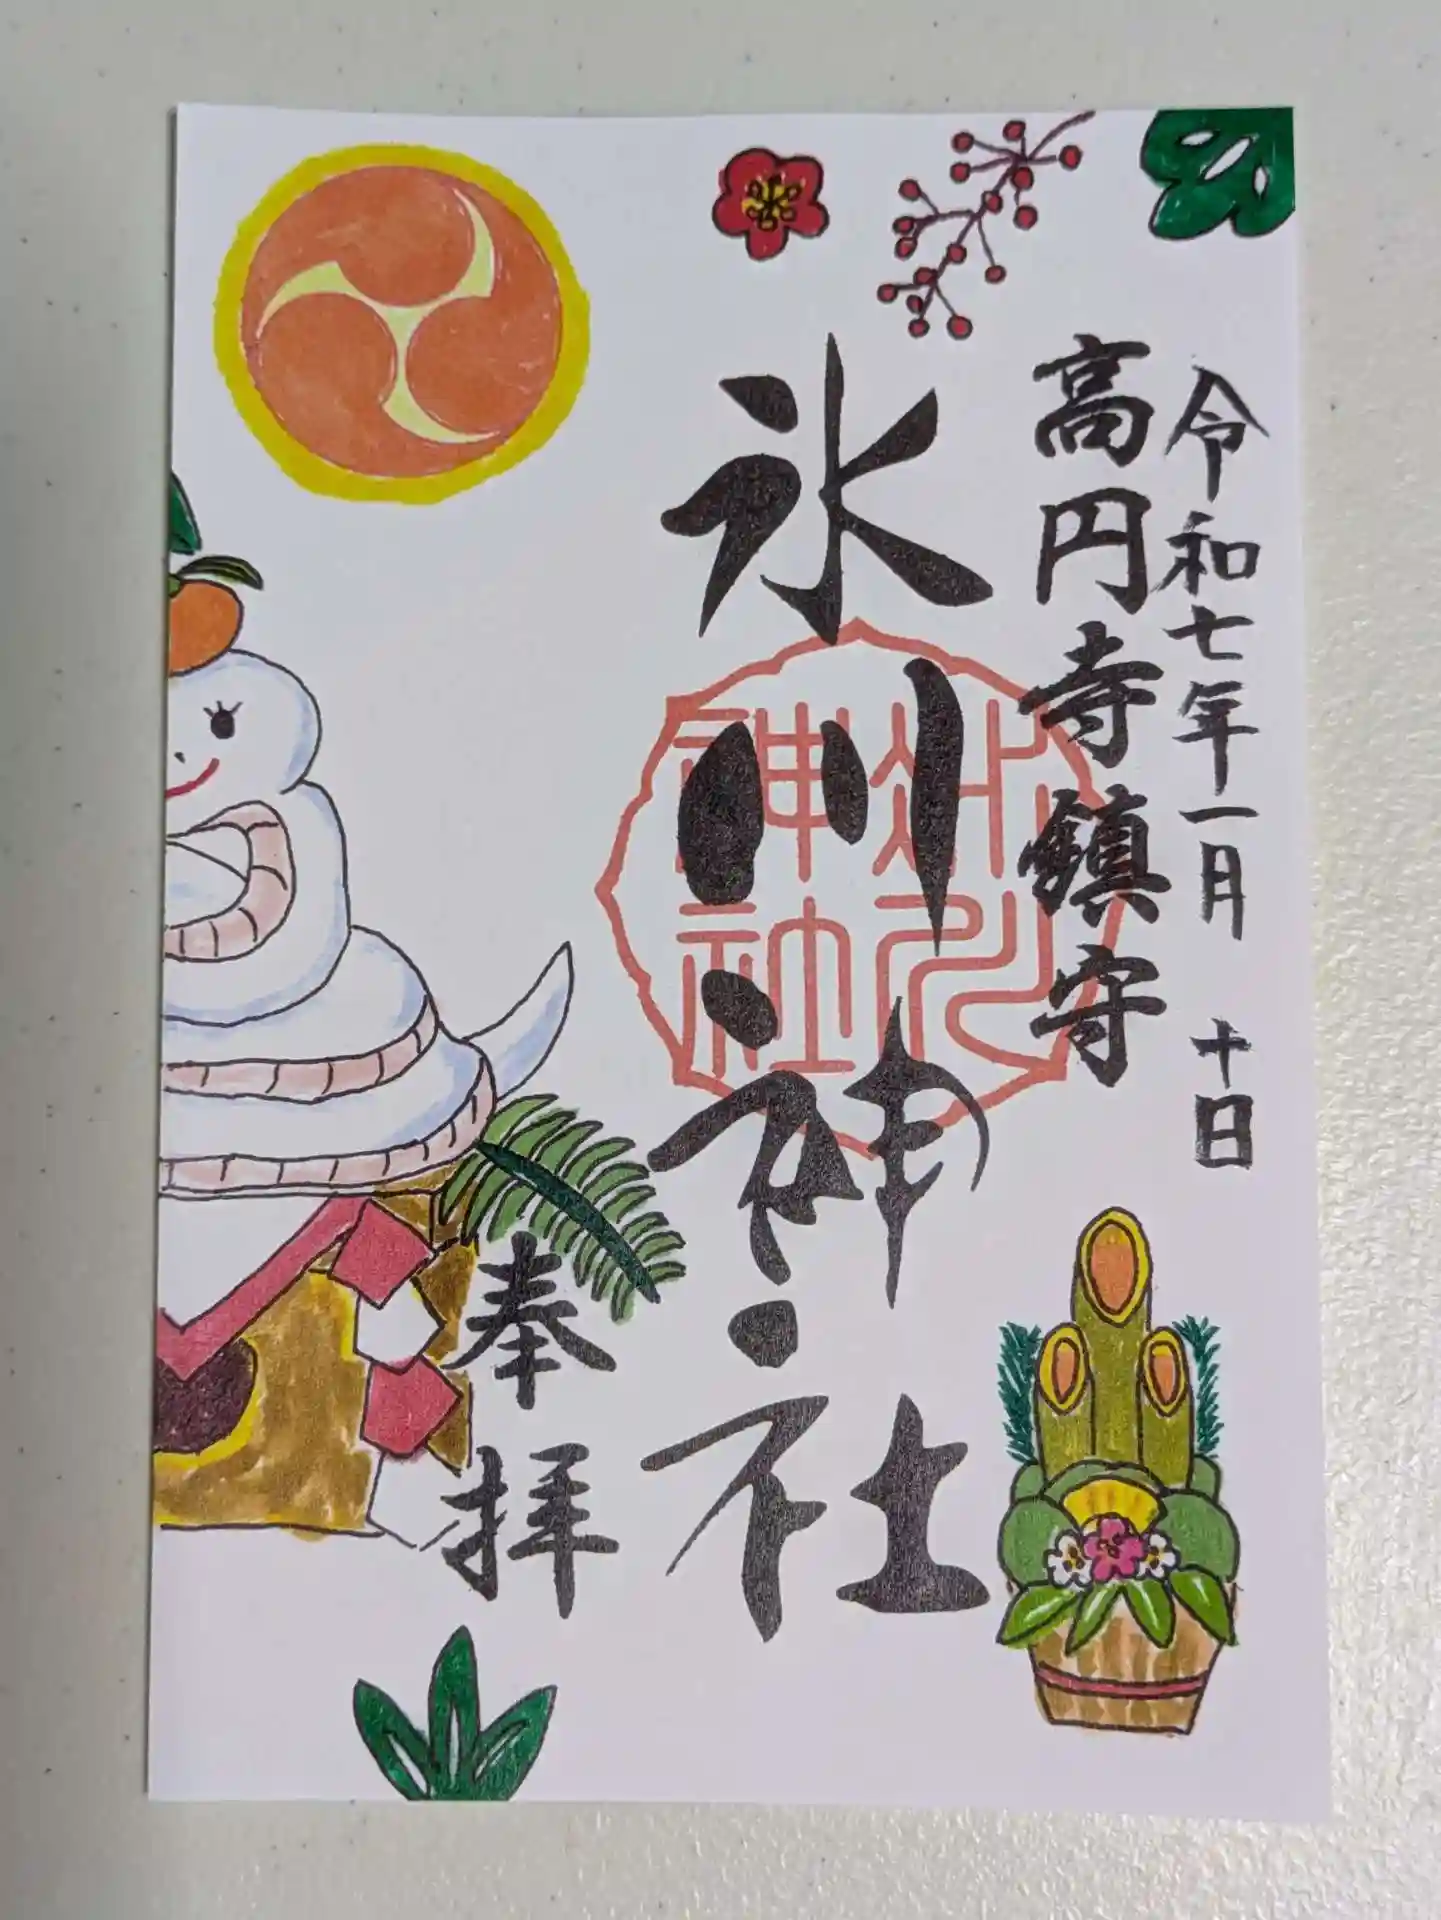 令和七年一月 十日
高円寺鎮守
氷川神社
奉拝